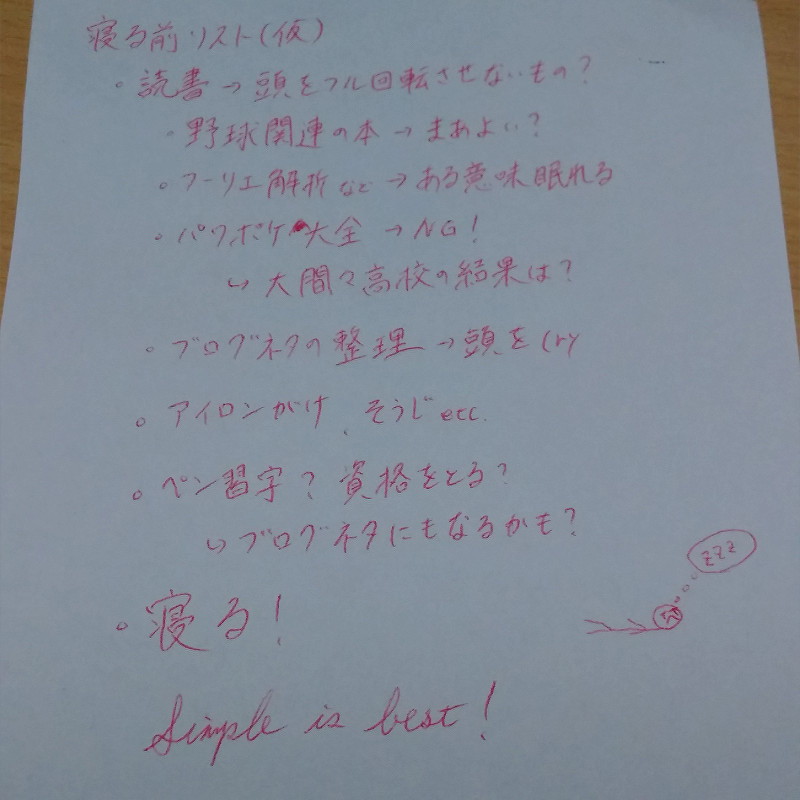 寝る前リスト(仮)
・読書→頭をフル回転させないもの?
・野球関連の本→まあよい?
・フーリエ解析など→ある意味眠れる
・パワポケ大全→NG!
↳大間々高校の結果は?
・ブログネタの整理→頭を(ry
・アイロンがけ、そうじetc.
・ペン習字?資格をとる?
↳ブログネタにもなるかも?
zzz
・寝る!
Simple is best!